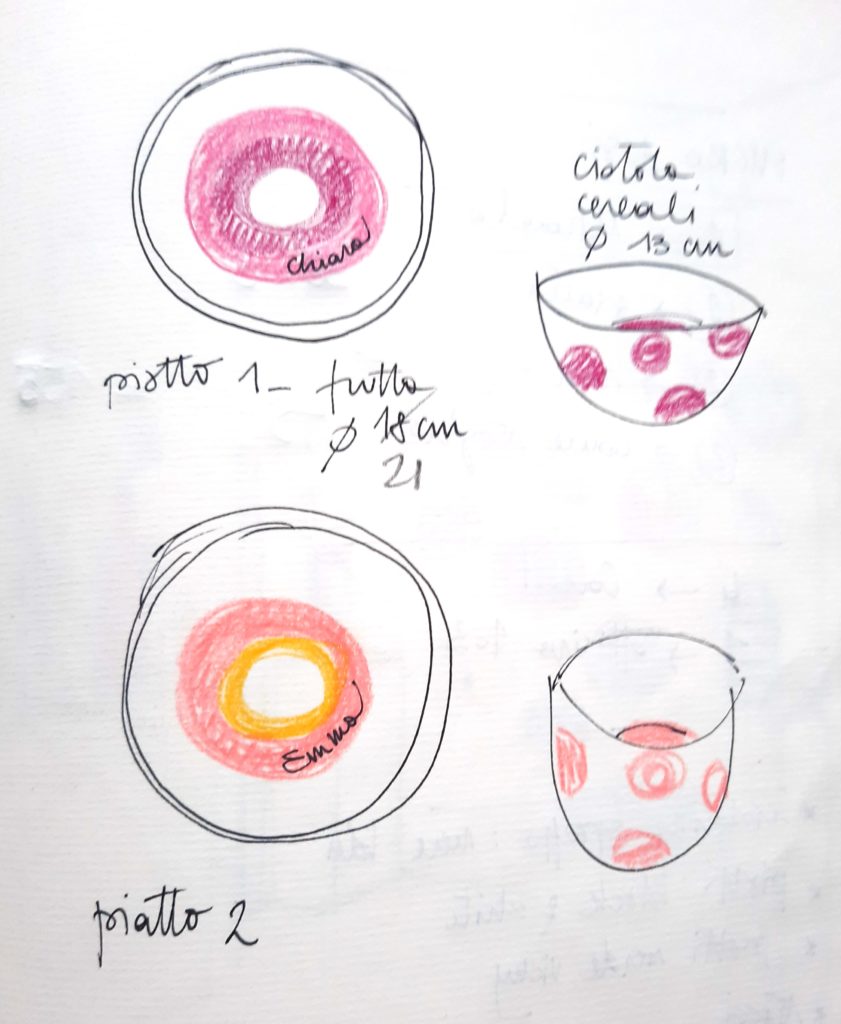 Chiara
ciotola
cereali
Ø 13 cm
piatto 1 - frutta
Ø 18 cm
21
Emma
piatto 2